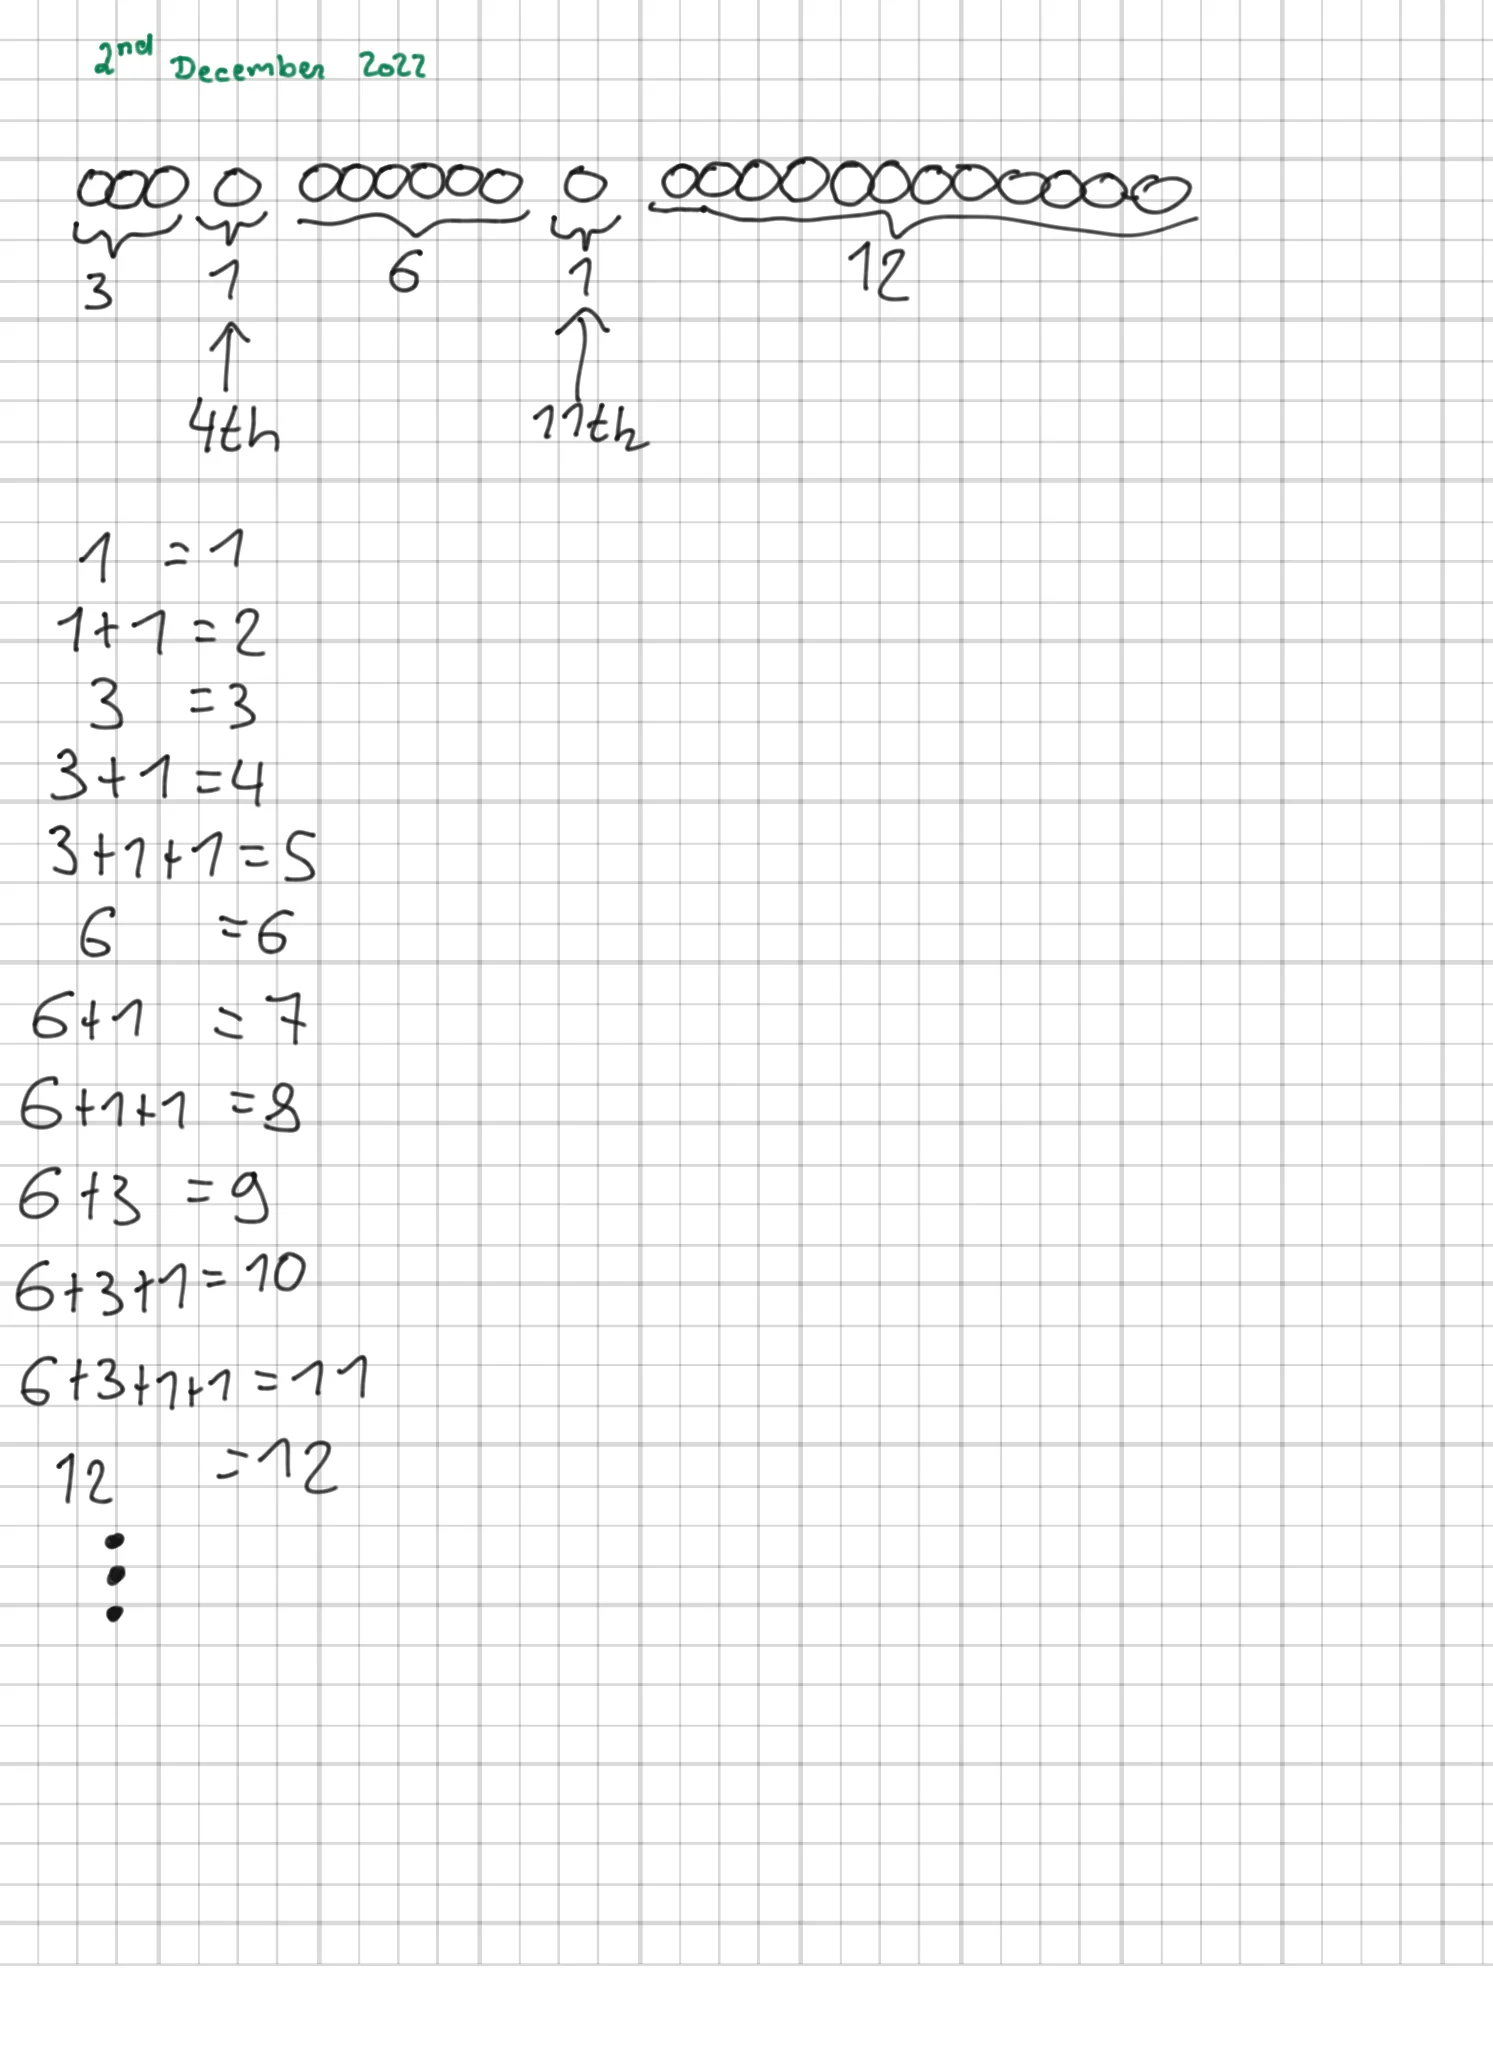 2nd December 2022
3 1 6 1 12
4th 11th
1 = 1
1+1 = 2
3 = 3
3+1 = 4
3+1+1 = 5
6 = 6
6+1 = 7
6+1+1 = 8
6+3 = 9
6+3+1 = 10
6+3+1+1 = 11
12 = 12